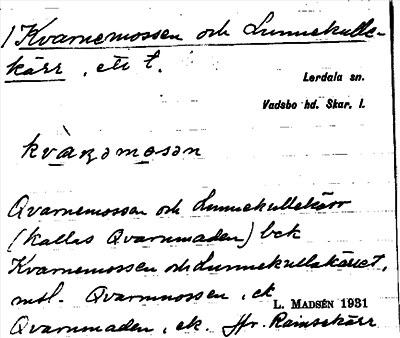 1 Kvarnemossen och Lunnekulle-
kärr, ett t.
Lerdala sn.
Vadsbo hd. Skar. l.
kvàɳəmosən
Qvarnemossan och Lunnekullekärr
(kallas Qvarnmaden) bek
Kvarnemossen och Lunnekullekärret,
msl. Qvarnmossen, ek
L. MADSÉN 1931
Qvarnmaden, ek. Jfr. Ramsekärr